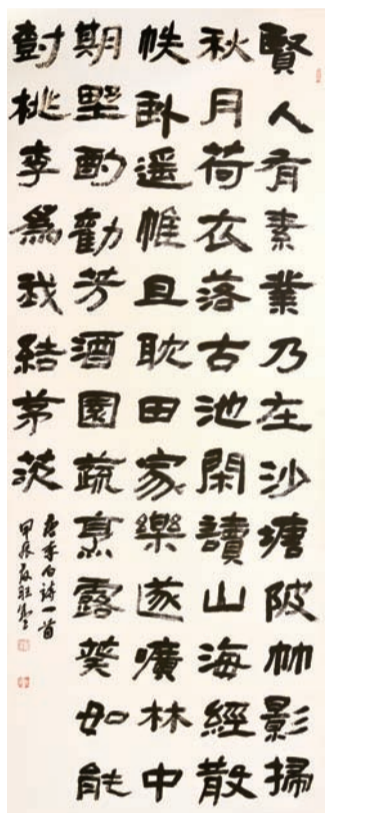 賢人有素業乃在沙塘陂竹影掃
秋月荷衣落古池閑讀山海經散
帙卧遥帷且耽田家樂遂曠林中
期野酌勸芳酒園蔬烹露葵如能
對桃李爲我結茅茨
唐李白詩一首
甲辰夏